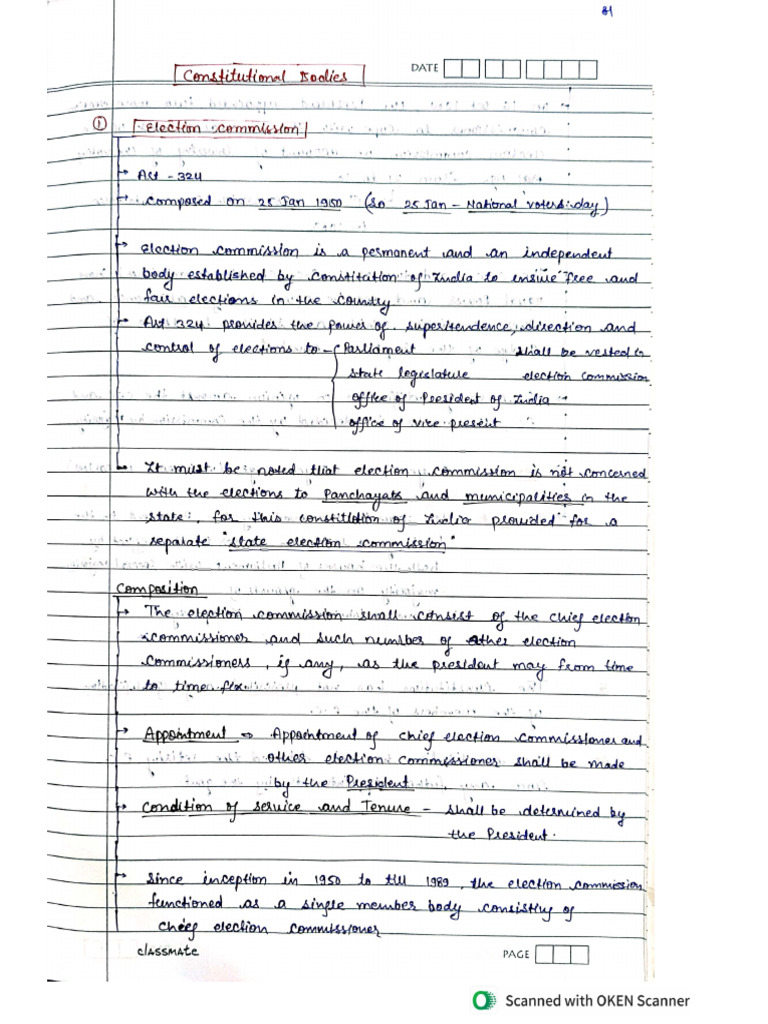 31
DATE
Constitutional Bodies
① Election Commission
→ Art - 324
→ Composed on 25 Jan 1950 (So 25 Jan - National voters day)
→ Election Commission is a permanent and an independent
body established by constitution of India to ensure free and
fair elections in the country
→ Art 324 provides the power of superitendence, direction and
control of elections to - Parliament shall be vested in
state legislature election commission
office of President of India
office of vice present
→ It must be noted that election commission is not concerned
with the elections to Panchayats and municipalities in the
state, for this constitution of India provided for a
separate "state election commission"
Composition
→ The election commission shall consist of the chief election
commissioner and such number of other election
commissioners, if any, as the president may from time
to time fix
→ Appointment ⇒ Appointment of chief election commissioner and
other election commissioner shall be made
by the President
→ Condition of service and Tenure - shall be determined by
the President.
→ Since inception in 1950 to till 1989, the election commission
functioned as a single member body consisting of
chief election commissioner
classmate
PAGE
Scanned with OKEN Scanner